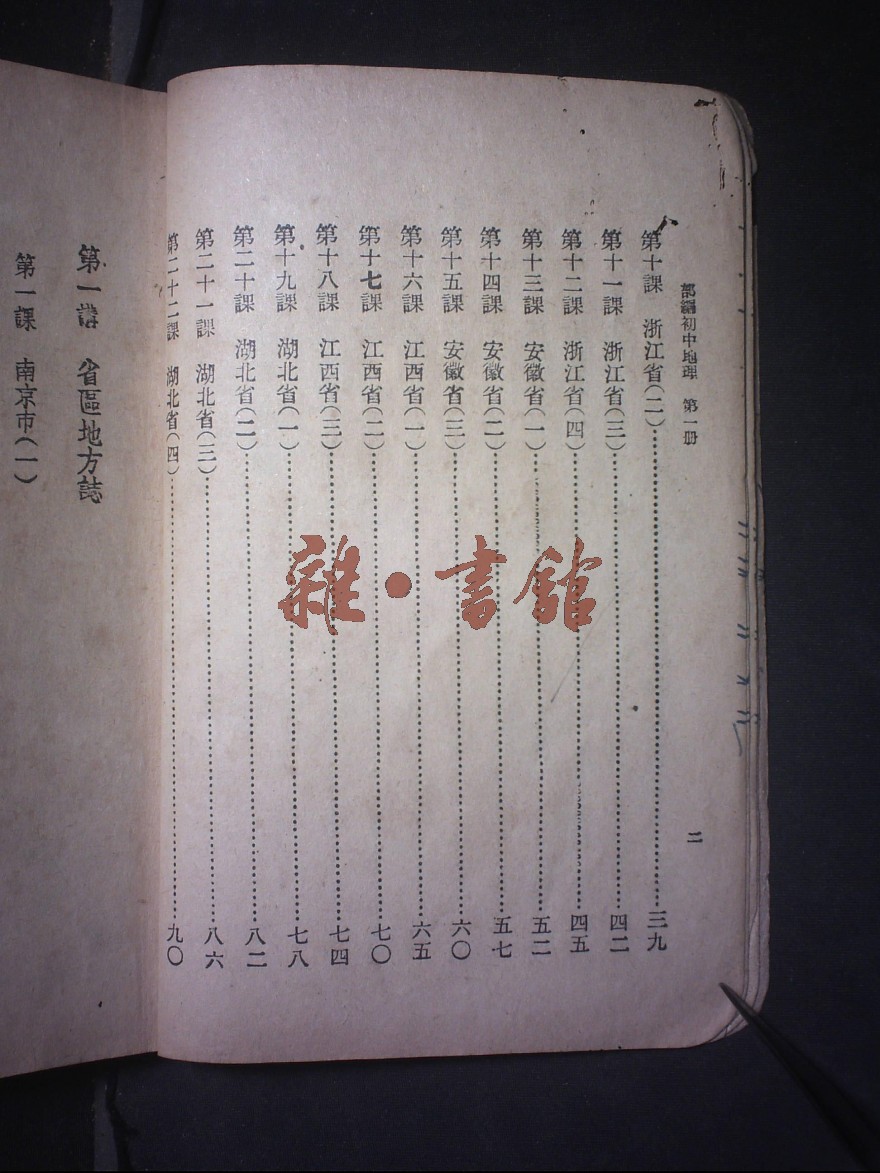 部編初中地理　第一册
第十課　浙江省(二)…………三九
第十一課　浙江省(三)…………四二
第十二課　浙江省(四)…………四五
第十三課　安徽省(一)…………五二
第十四課　安徽省(二)…………五七
第十五課　安徽省(三)…………六〇
第十六課　江西省(一)…………六五
第十七課　江西省(二)…………七〇
第十八課　江西省(三)…………七四
第十九課　湖北省(一)…………七八
第二十課　湖北省(二)…………八二
第二十一課　湖北省(三)…………八六
第二十二課　湖北省(四)…………九〇
二
第一講　省區地方誌
第一課　南京市(一)
雜・書館